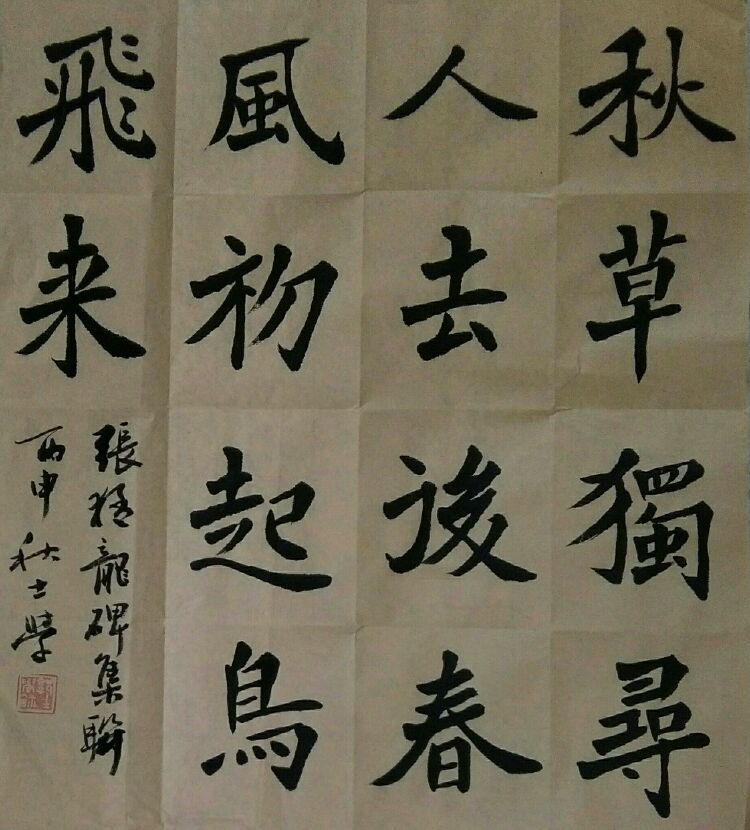 秋草獨尋
人去後春
風初起鳥
飛来
張猛龍碑集聯
丙申秋士學